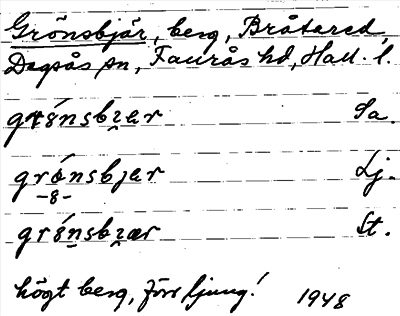 Grönsbjär, berg, Bråtared,
Dagsås sn, Faurås hd, Hall. l.
grǿnsbɀer Sa.
grǿnsbjer Lj.
-8-
grǿnsbɀær St.
högt berg, förr ljung! 1948